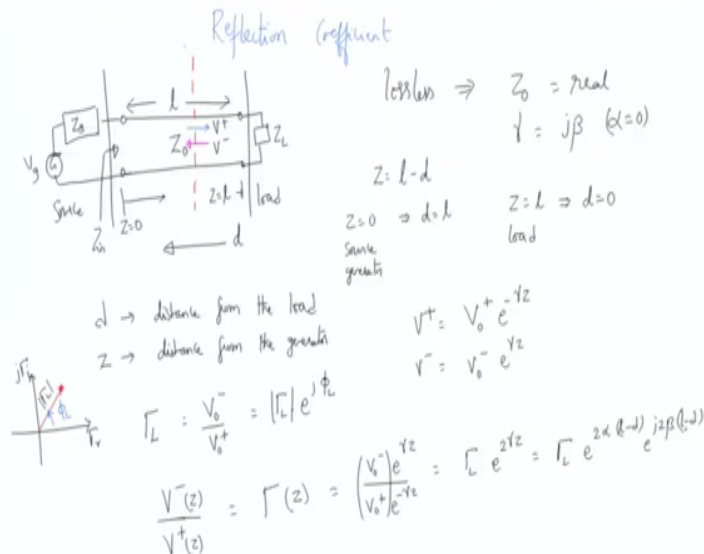 Reflection Coefficient
l
lossless ⇒ Z₀ = real
γ = jβ (α=0)
V⁺
V⁻
Z₀
Z_L
V_g
Source
Z_in
z=0
z=l
load
d
z = l-d
z=0 ⇒ d=l
source
generator
z=l ⇒ d=0
load
d → distance from the load
z → distance from the generator
V⁺ = V₀⁺ e^{-γz}
V⁻ = V₀⁻ e^{γz}
jΓᵢ
|Γ_L|
φ_L
Γᵣ
Γ_L = V₀⁻/V₀⁺ = |Γ_L| e^{jφ_L}
V⁻(z)/V⁺(z) = Γ(z) = (V₀⁻/V₀⁺) e^{γz}/e^{-γz} = Γ_L e^{2γz} = Γ_L e^{2α(l-d)} e^{j2β(l-d)}